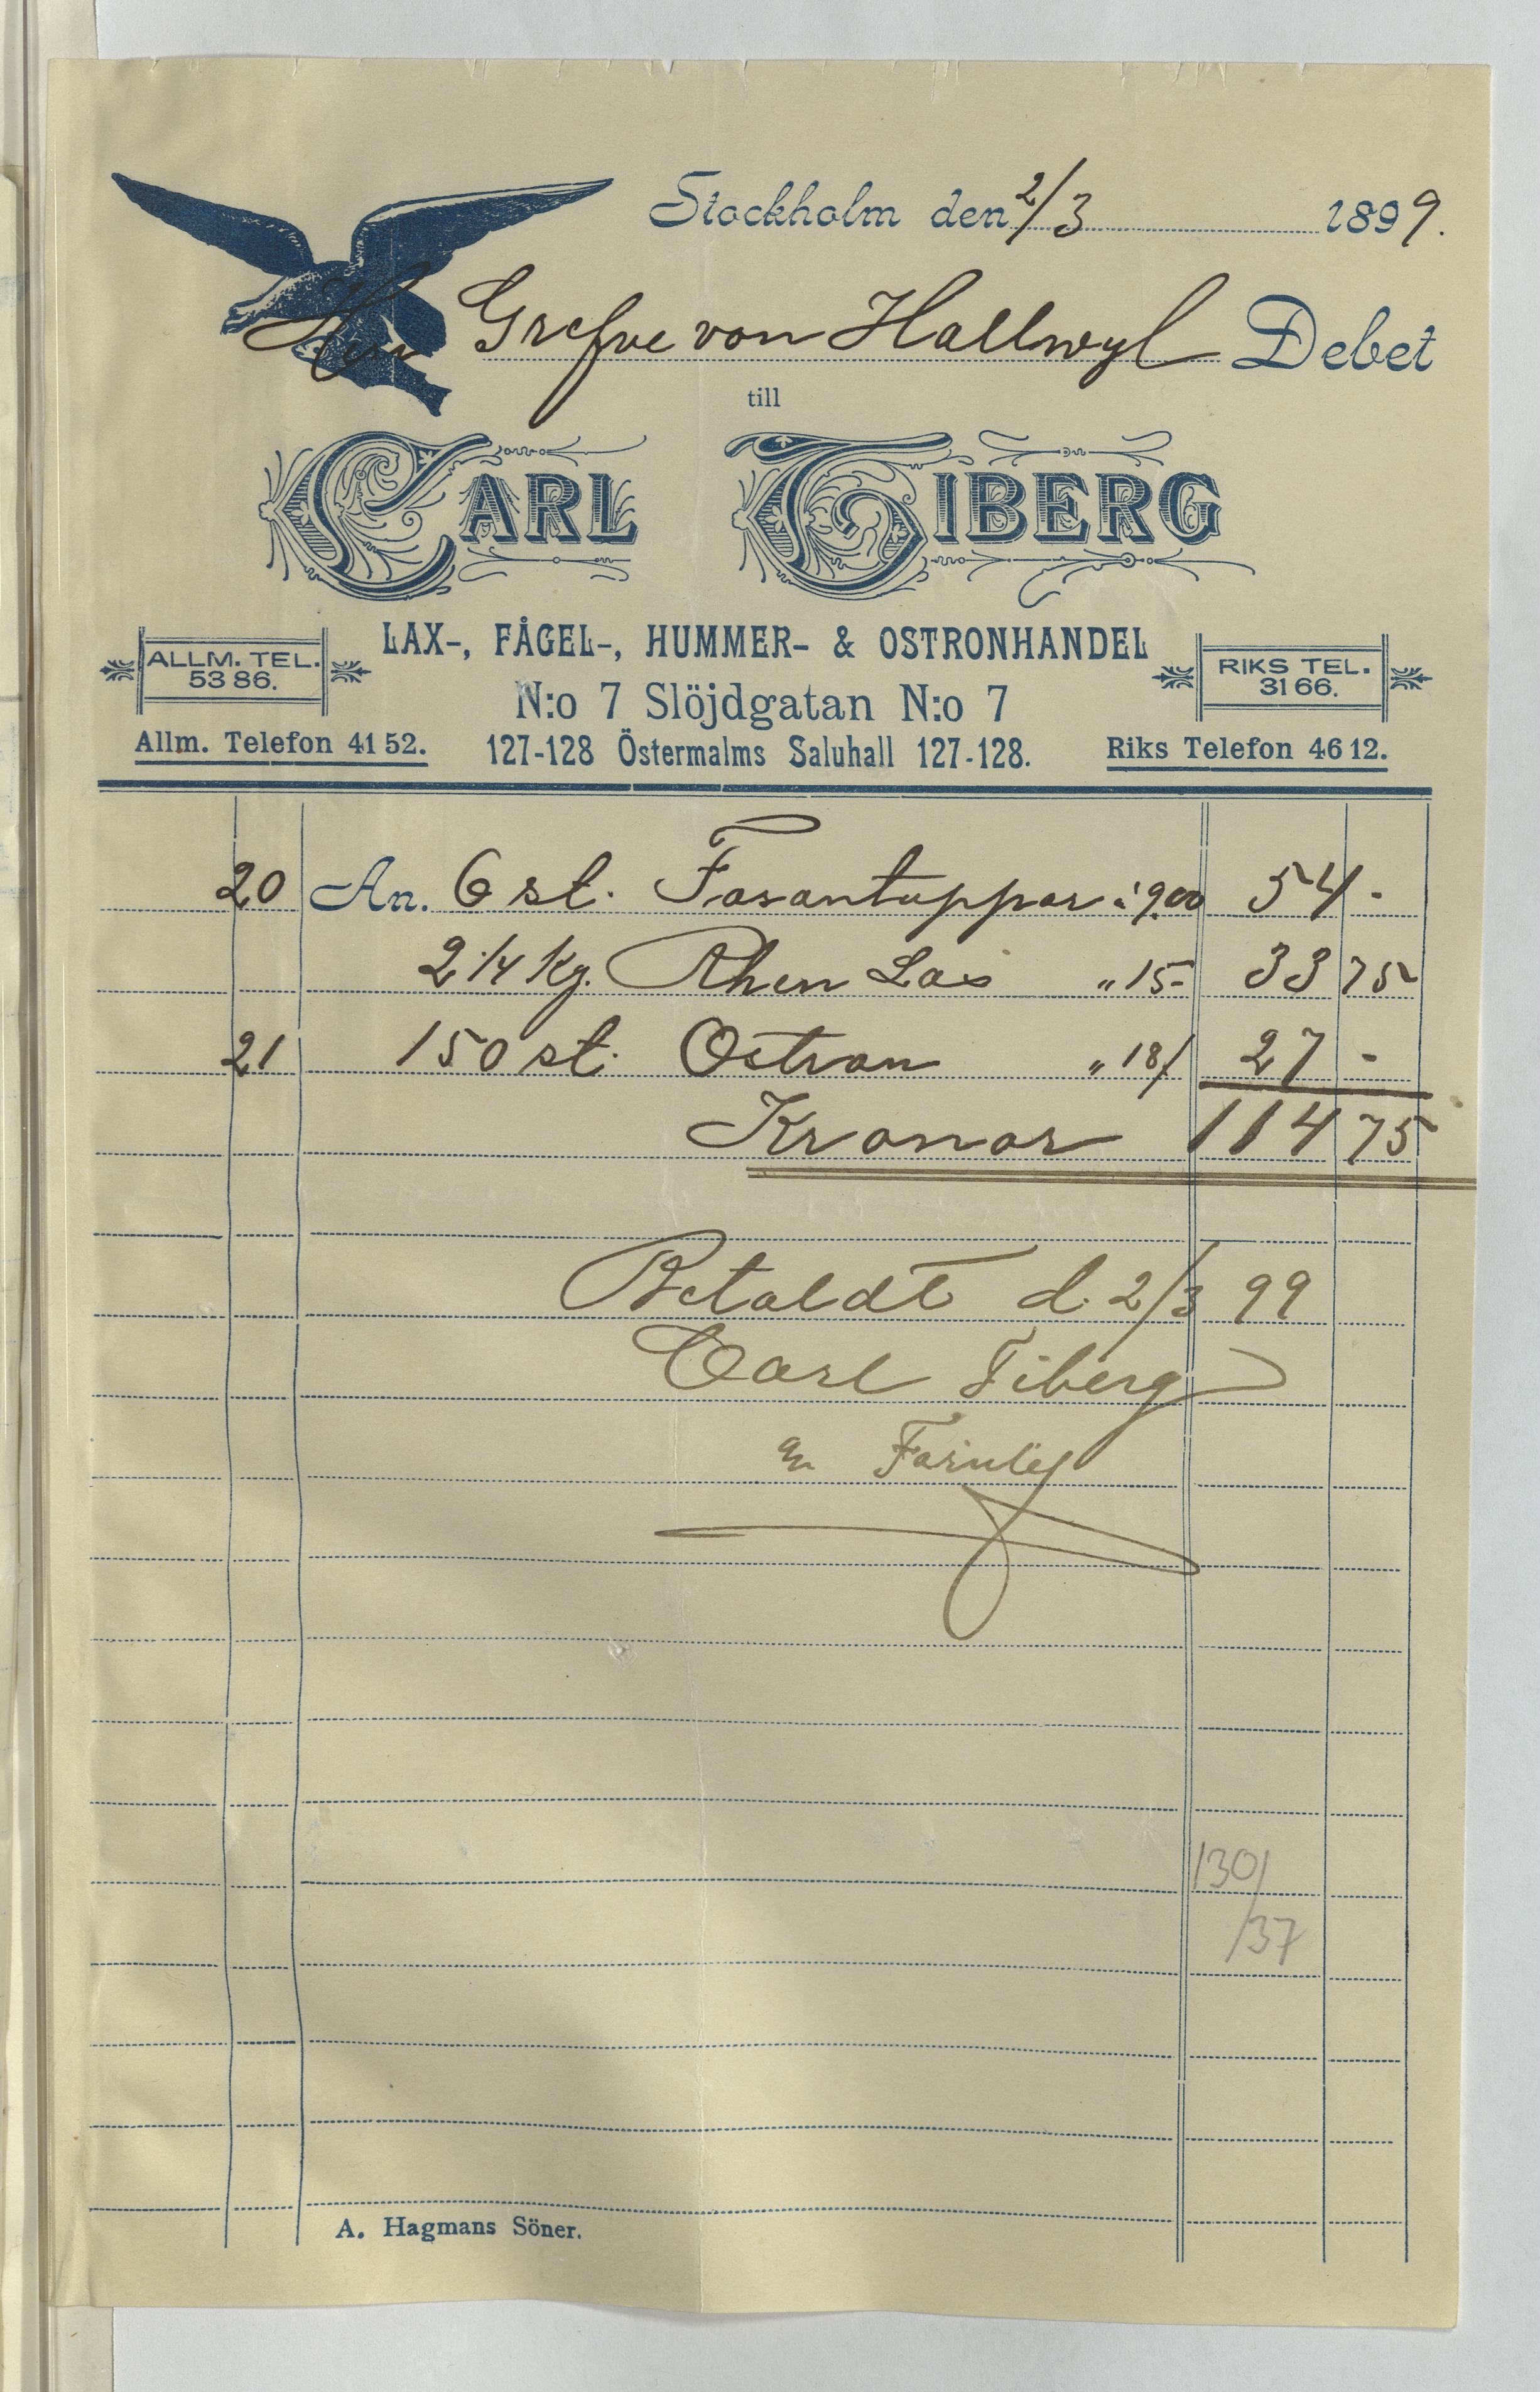 Stockholm den 2/3 1899.
Herr Grefve von Hallwyl Debet
till
CARL TIBERG
LAX-, FÅGEL-, HUMMER- & OSTRONHANDEL
ALLM. TEL. 53 86.
RIKS TEL. 31 66.
N:o 7 Slöjdgatan N:o 7
Allm. Telefon 41 52. 127-128 Östermalms Saluhall 127-128. Riks Telefon 46 12.
20 An. 6 st. Fasantuppar à 9.00 54 -
2 1/4 Kg. Rhen Lax " 15- 33 75
21 150 st. Ostron " 18/ 27 -
Kronor 114 75
Betaldt d. 2/3 99
Carl Tiberg
130/
/37
A. Hagmans Söner.